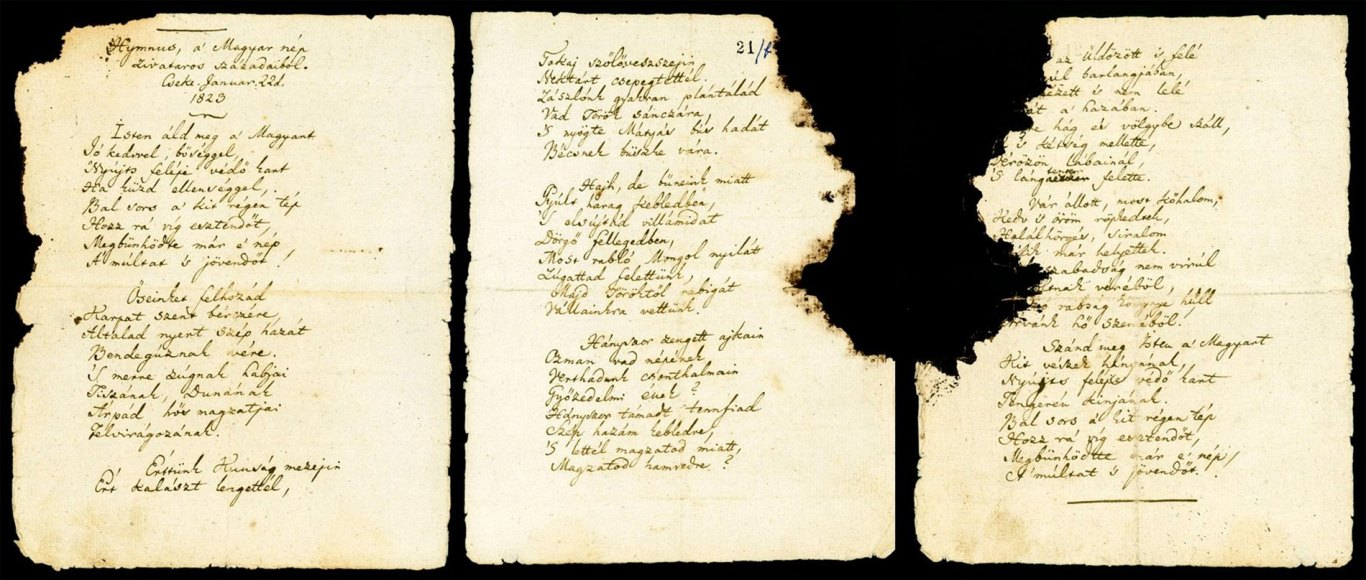 Hymnus, a' Magyar nép
zivataros századaiból.
Cseke. Januar. 22d.
1823
Isten áld meg a' Magyart
Jó kedvvel, bőséggel,
Nyújts feléje védő kart
Ha küzd ellenséggel,
Bal sors a' kit régen tép
Hozz rá víg esztendőt,
Megbűnhődte már e' nép
A' múltat 's jövendőt!
Őseinket felhozád
Kárpát szent bérczére,
Általad nyert szép hazát
Bendegúznak vére.
'S merre zúgnak habjai
Tiszának, Dunának
Árpád hős magzatjai
Felvirágozának.
Értünk Kunság mezején
Ért kalászt lengettél,
21/b
Tokaj szőlővesszein
Nektárt csepegtettél.
Zászlónk gyakran plántálád
Vad Török sánczára,
'S nyögte Mátyás bús hadát
Bécsnek büszke vára.
Hajh, de bűneink miatt
Gyúlt harag kebledben,
'S elsújtád villámidat
Dörgő fellegedben,
Most rabló Mongol nyilát
Zúgattad felettünk,
Majd Töröktől rabigát
Vállainkra vettünk.
Hányszor zengett ajkain
Ozman vad népének
Vert hadunk csonthalmain
Győzedelmi ének?
Hányszor támadt tenn fiad
Szép hazám kebledre,
'S lettél magzatod miatt,
Magzatod hamvvedre?
az üldözött 's felé
barlangjában,
's nem lelé
a' hazában.
hág és völgybe száll,
's kétség mellette,
Vérözön lábainál,
'S lángtenger felette.
Vár állott, most kőhalom,
Kedv 's öröm röpkedtek,
Halálhörgés, siralom
már helyettek.
szabadság nem virúl
véréből,
rabság könnye hull
Árvánk hő szeméből.
Szánd meg Isten a' Magyart
Kit vészek hányának,
Nyújts feléje védő kart
Tengerén kínjának.
Bal sors a' kit régen tép
Hozz rá víg esztendőt,
Megbűnhődte már e' nép
A' múltat 's jövendőt.